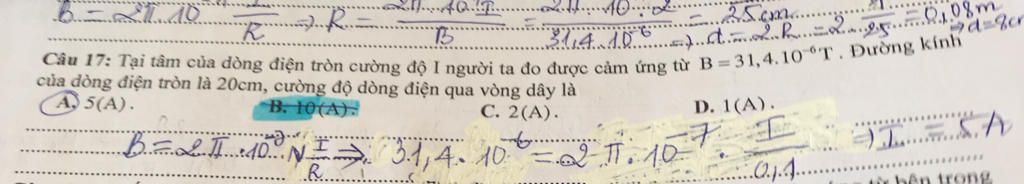 B = 2π.10 I/R ⇒ R = 2π.10.I/B = 2π.10.2/31,4.10⁻⁶ = 25cm
⇒ d = 2.R = 2. /25 = 0,08m ⇒ d = 8cm
Câu 17: Tại tâm của dòng điện tròn cường độ I người ta đo được cảm ứng từ B = 31,4.10⁻⁶T. Đường kính
của dòng điện tròn là 20cm, cường độ dòng điện qua vòng dây là
A. 5(A). B. 10(A). C. 2(A). D. 1(A).
B = 2π.10⁻⁷ N I/R ⇒ 31,4.10⁻⁶ = 2.π.10⁻⁷ . I/0,1 ⇒ I = 5A
bên trong